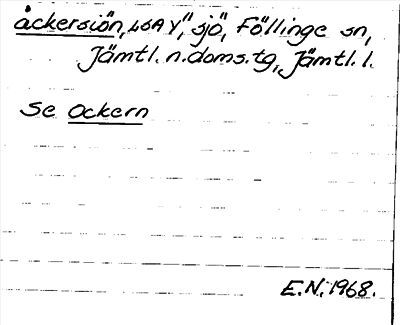 åckersiön, LSA Y", sjö, Föllinge sn,
Jämtl. n. doms. tg, Jämtl. l.
Se Ockern
E.N. 1968.